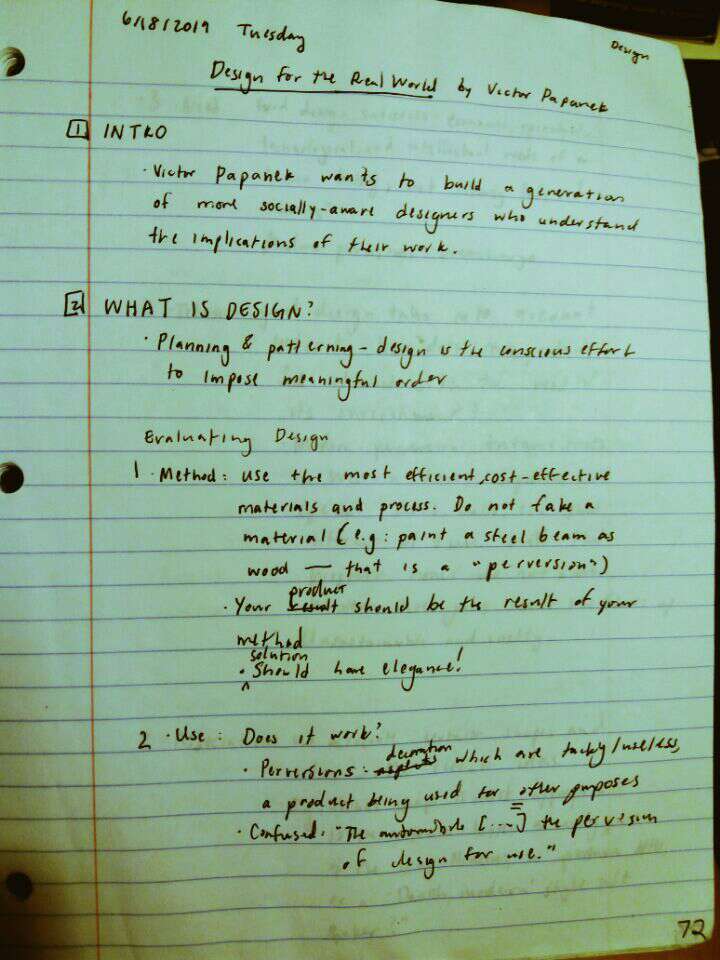 6/18/2019 Tuesday
Design
Design for the Real World by Victor Papanek
1 INTRO
· Victor Papanek wants to build a generation
of more socially-aware designers who understand
the implications of their work.
2 WHAT IS DESIGN?
· Planning & patterning - design is the conscious effort
to impose meaningful order
Evaluating Design
1 · Method: use the most efficient, cost-effective
materials and process. Do not fake a
material (e.g: paint a steel beam as
wood — that is a "perversion")
product
· Your result should be the result of your
method
solution
· ^ Should have elegance!
2 · Use: Does it work?
decoration
· Perversions: which are tacky/useless,
a product being used for other purposes
· Confused: "The automobile [...] the perversion
of design for use."
72